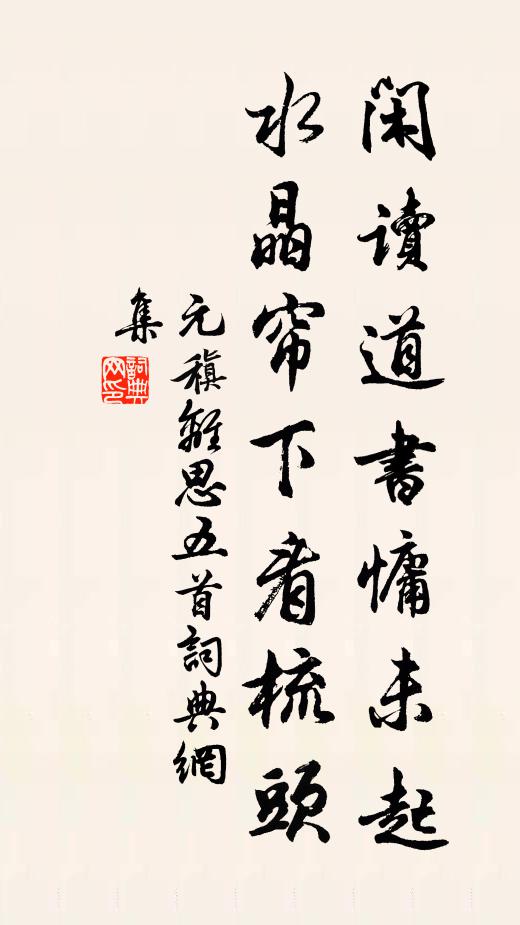 闲讀道書慵未起
水晶帘下看梳頭
元稹離思五首詞典網
集
詞典
网印